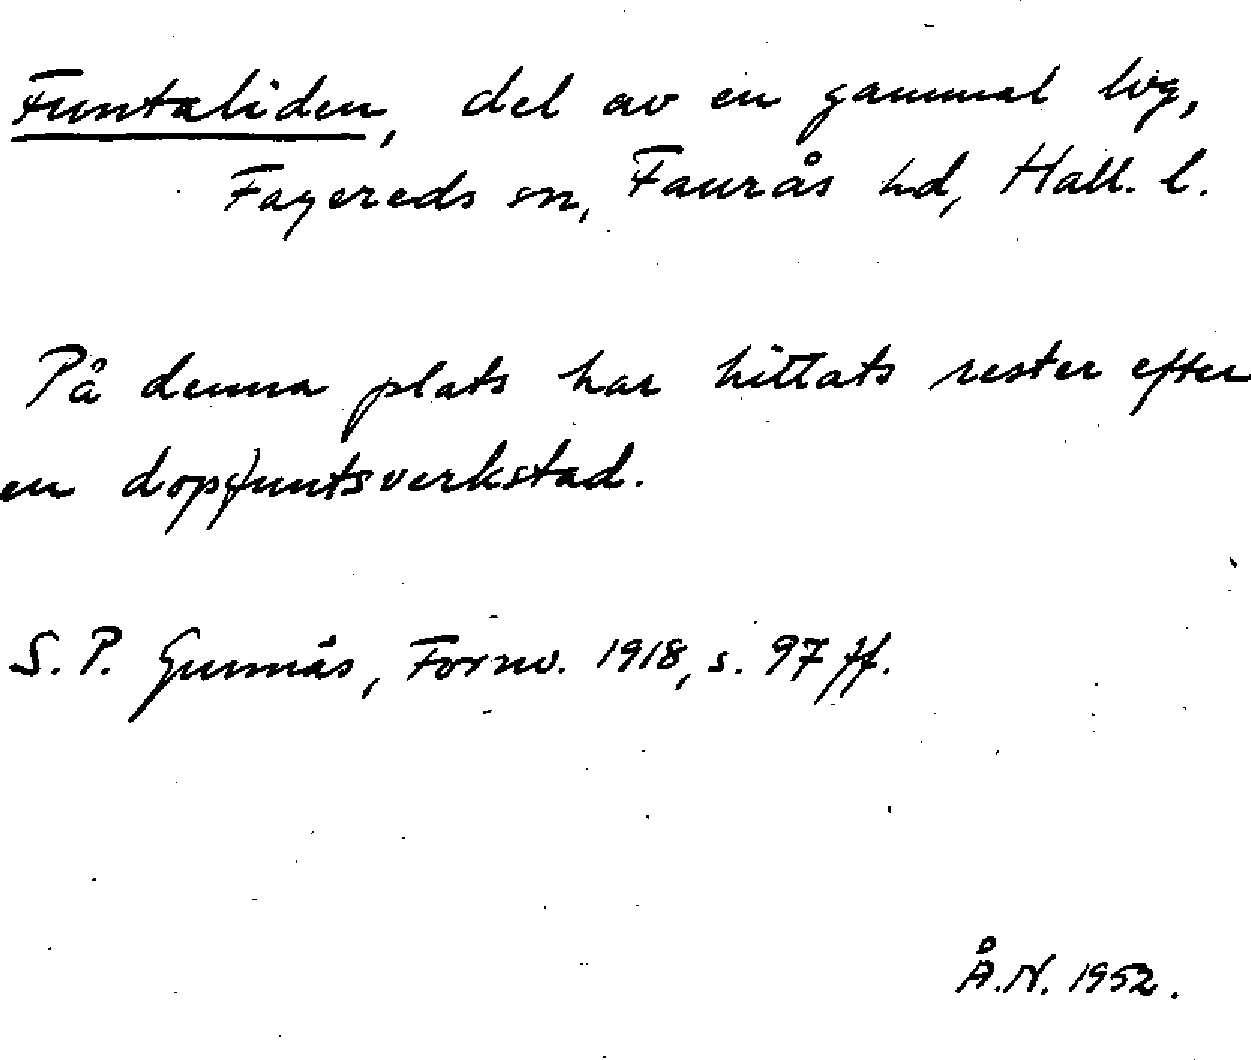 Funtaliden, del av en gammal väg,
Fagereds sn, Faurås hd, Hall. l.
På denna plats har hittats rester efter
en dopfuntsverkstad.
S. P. Gunnäs, Fornv. 1918, s. 97 ff.
Å.N. 1952.